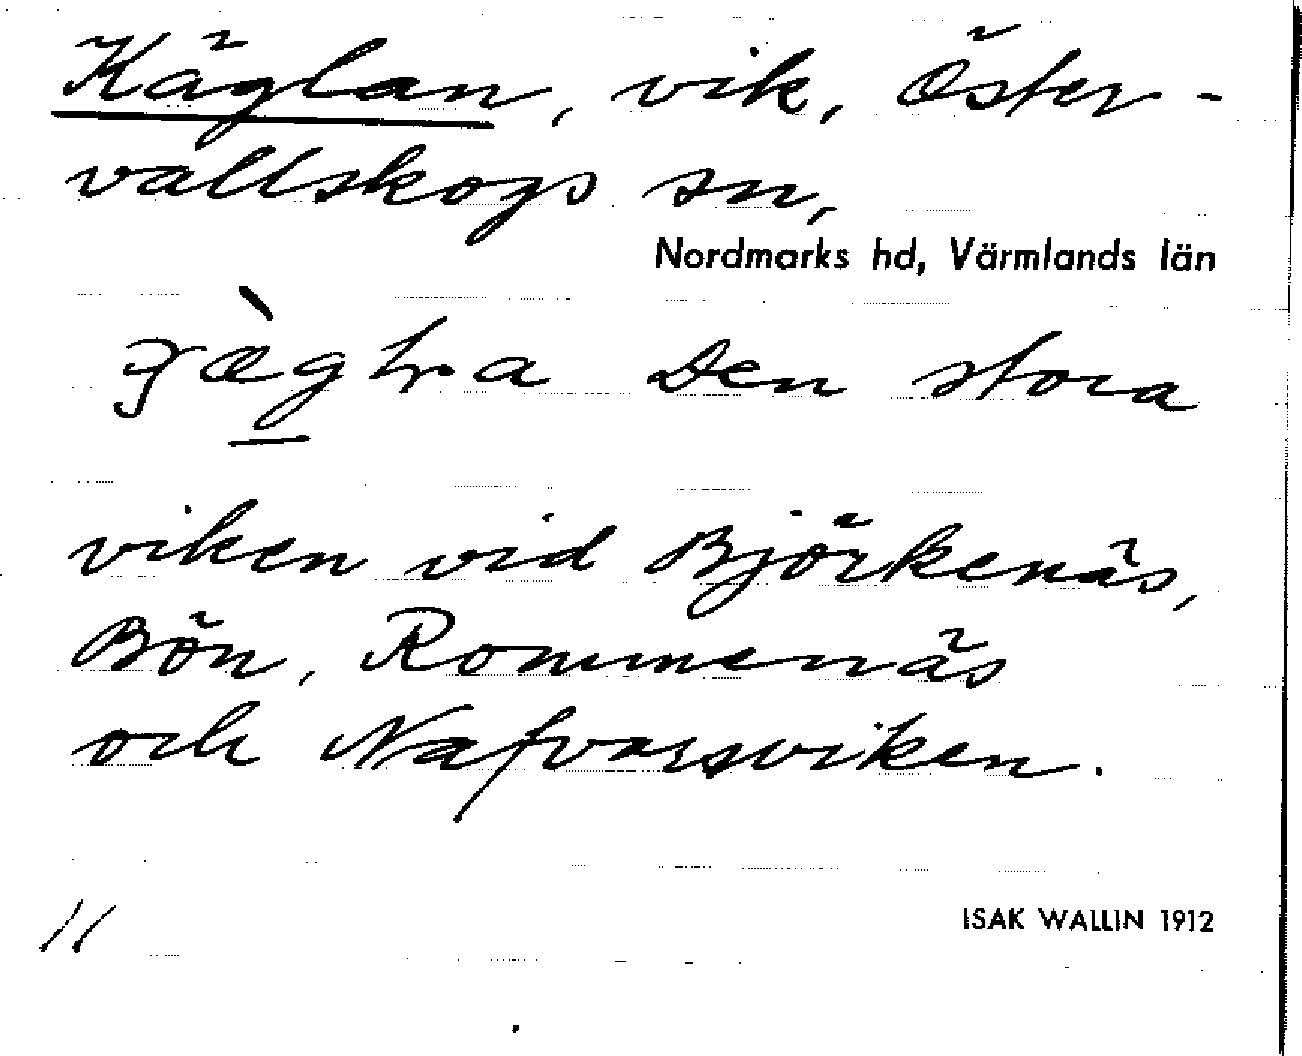 Käglan, vik, Öster-
vallskogs sn,
Nordmarks hd, Värmlands län
Den stora
viken vid Björkenäs,
Bön, Rommenäs
och Nafvarsviken.
ISAK WALLIN 1912